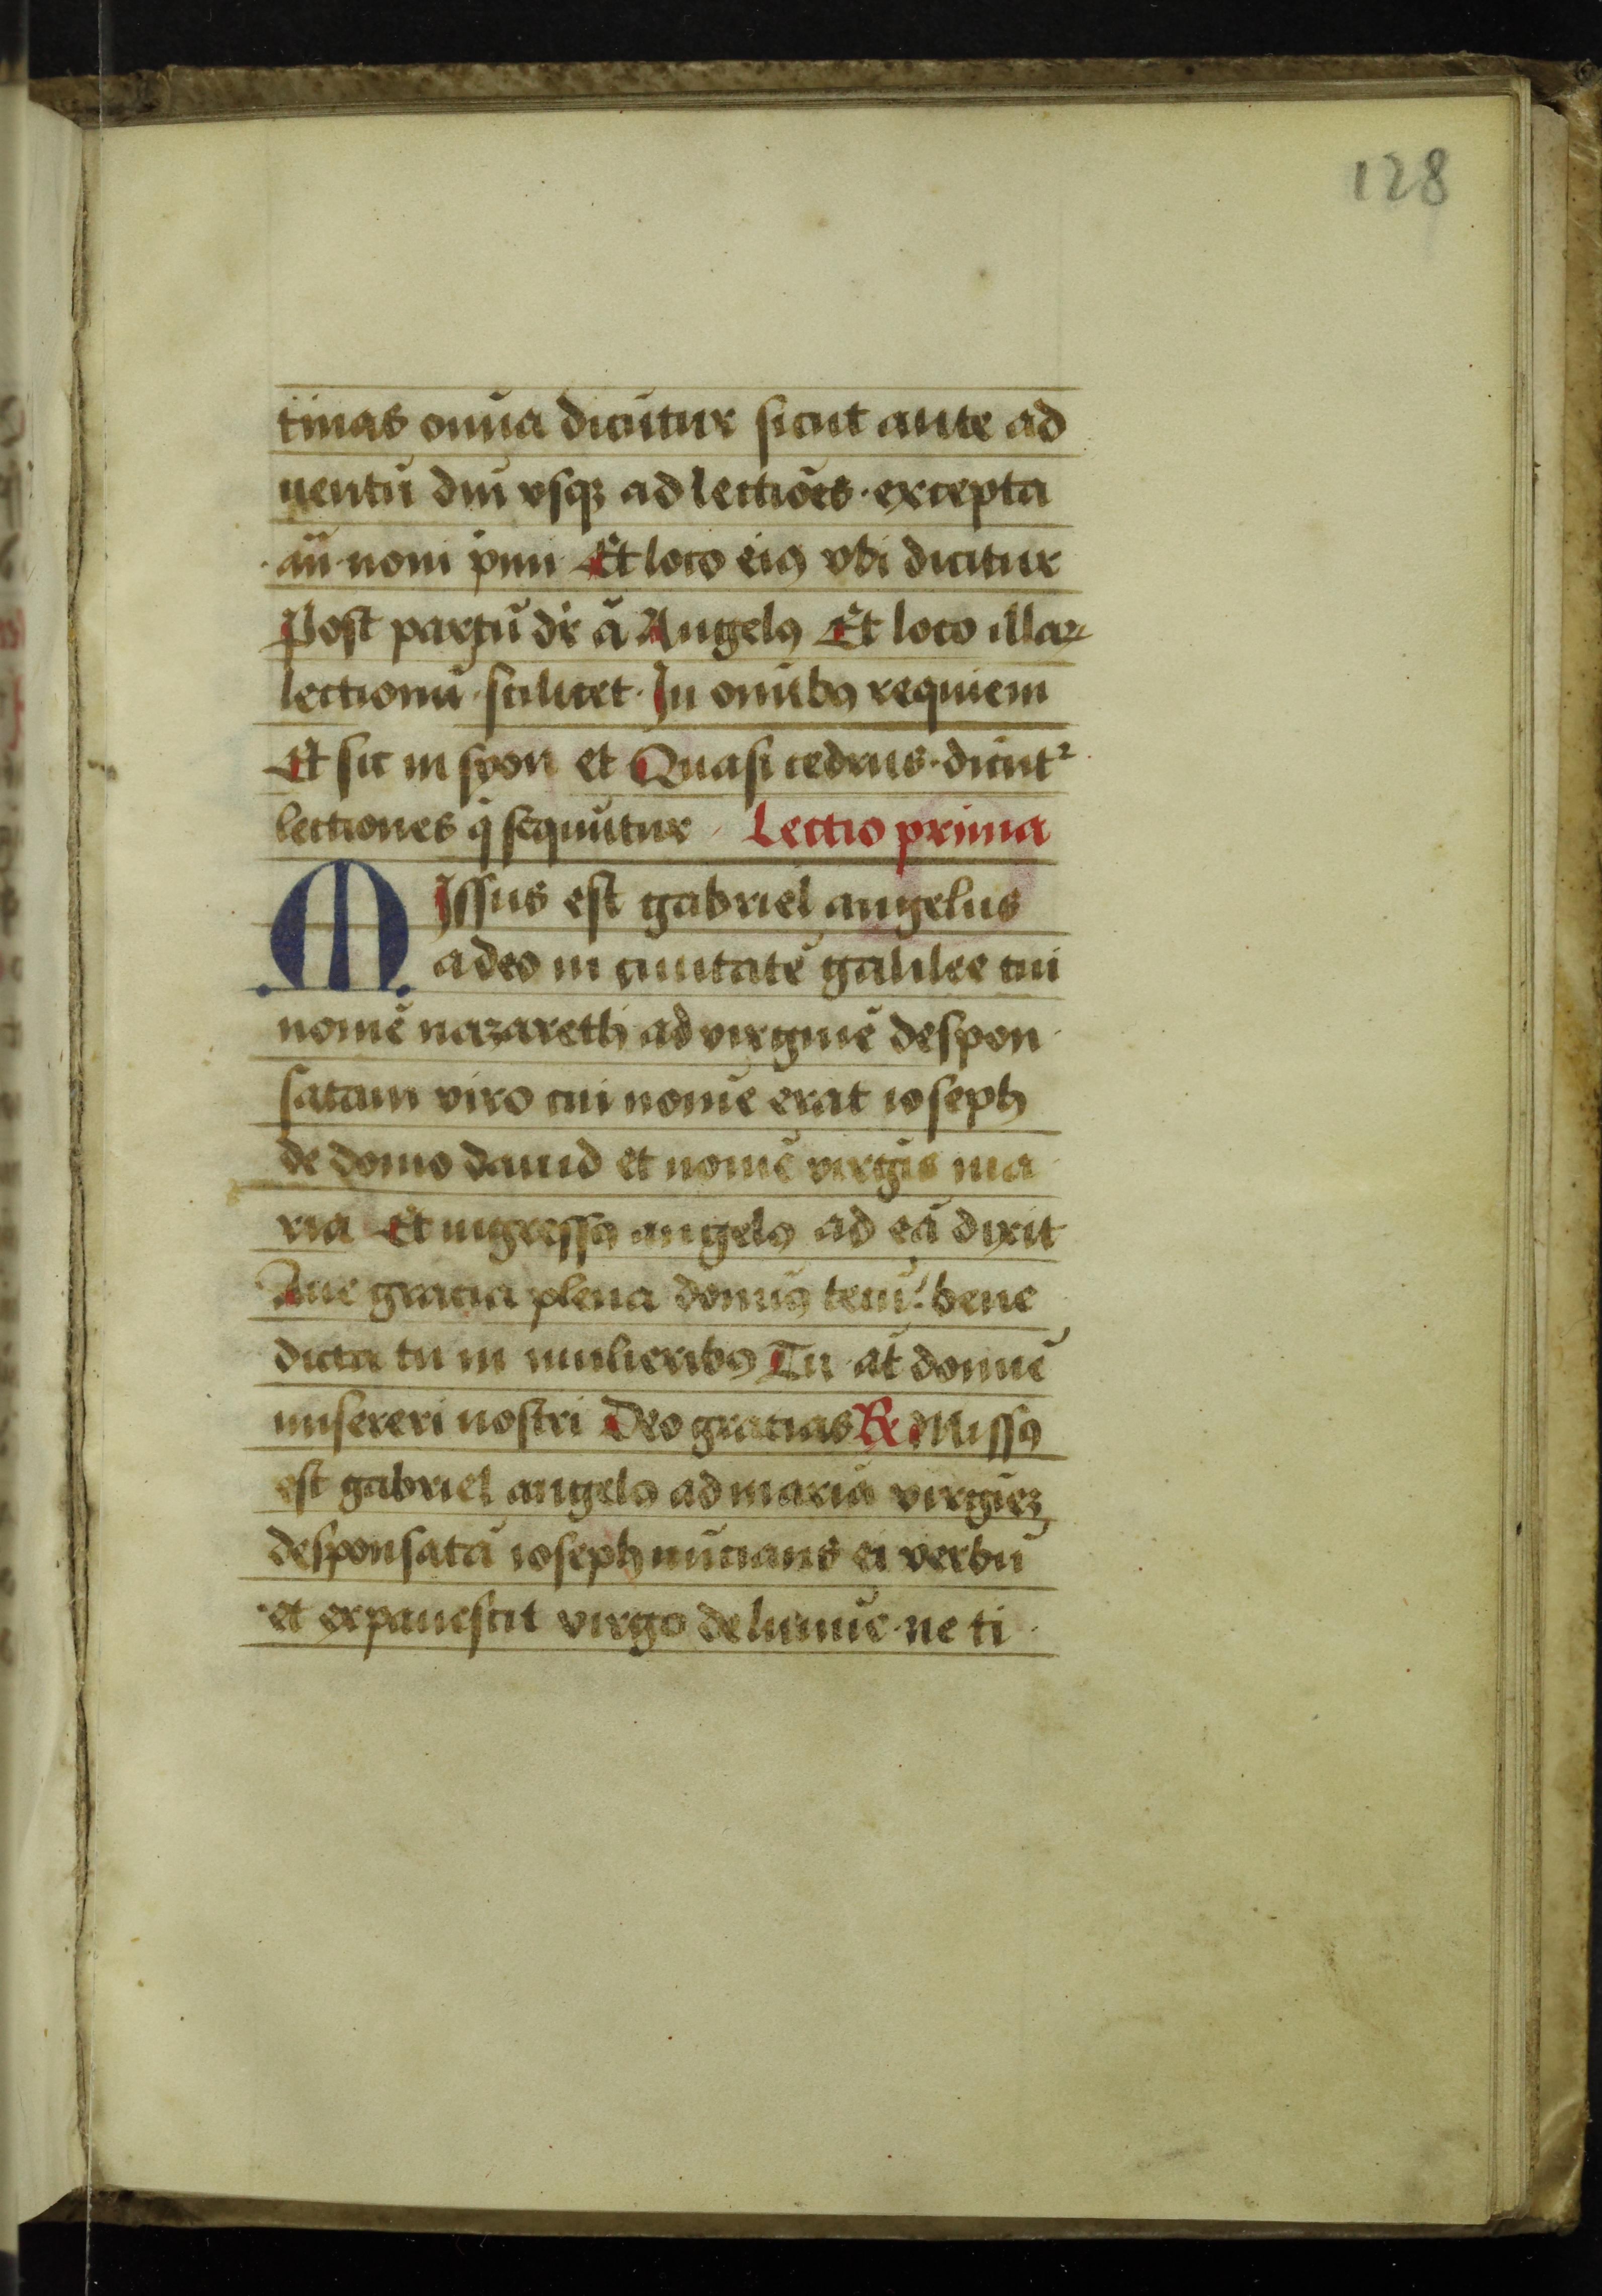 128
tinas om̄ia dicūtur sicut ante ad
uentū dn̄i vsqꝫ ad lectiōes · excepta
an̄ · noni pͥmi Et loco eiꝰ vbi dicitur
Post partū dr̄ ā Angelꝰ Et loco illaꝝ
lectionū · scilicet · In om̄ibꝰ requiem
Et sic in syon et Quasi cedrus · dicūtᷣ
lectiones q̄ sequūtur Lectio prima
MIssus est gabriel angelus
a deo in ciuitatē galilee cui
nomē nazareth ad virginē despon
satam viro cui nomē erat ioseph
de domo dauid et nomē virgīs ma
ria Et ingressꝰ angelꝰ ad eā dixit
Aue gracia plena domīꝰ tecū : bene
dicta tu in mulieribꝰ Tu at̄ domīe
misereri nostri Deo gracias ℟ Missꝰ
est gabriel angelꝰ ad mariā virgīeꝫ
desponsatā ioseph nūcians ei verbū
et expauescit virgo de lumīe · ne ti